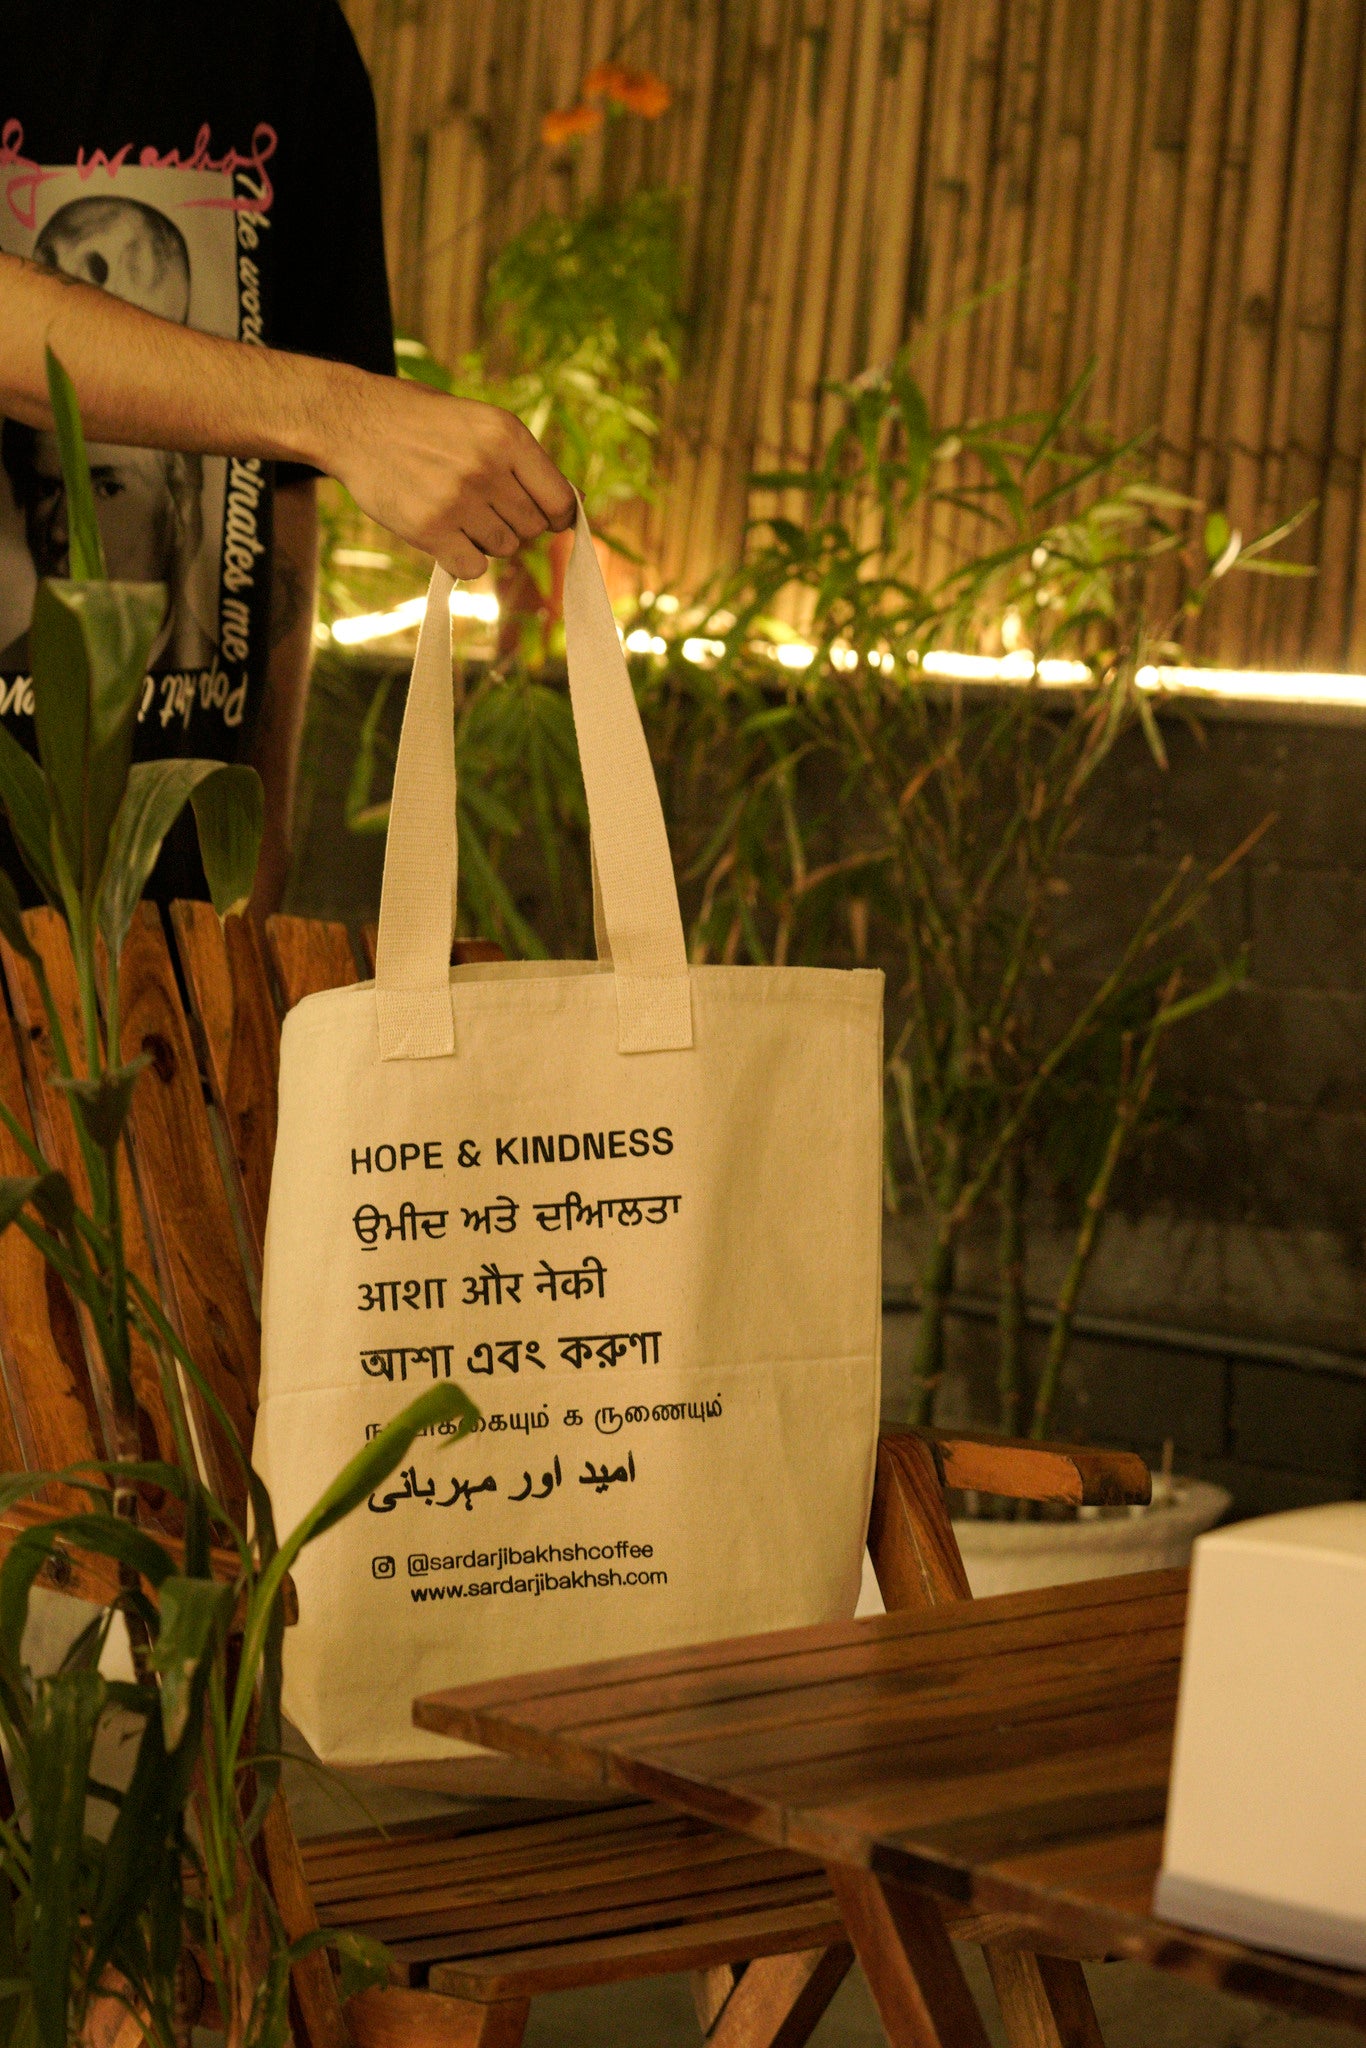 Warhol
The world
fascinates me
Pop Art is
HOPE & KINDNESS
ਉਮੀਦ ਅਤੇ ਦਆਿਲਤਾ
आशा और नेकी
আশা এবং করুণা
க ருணையும்
امید اور مہربانی
@sardarjibakhshcoffee
www.sardarjibakhsh.com